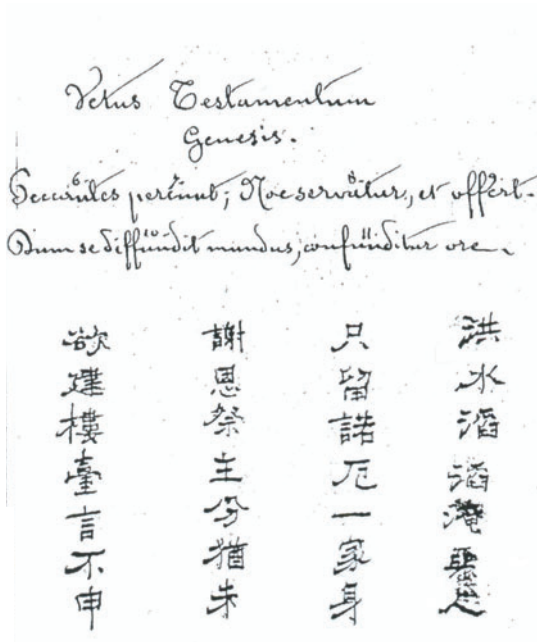 Vetus Testamentum
Genesis.
Peccantes pereunt; Noe servatur, et offert.
Dum se diffundit mundus, confunditur ore.
洪水滔滔淹人
只留諾厄一家身
謝恩祭主分猶未
欲建樓臺言不申